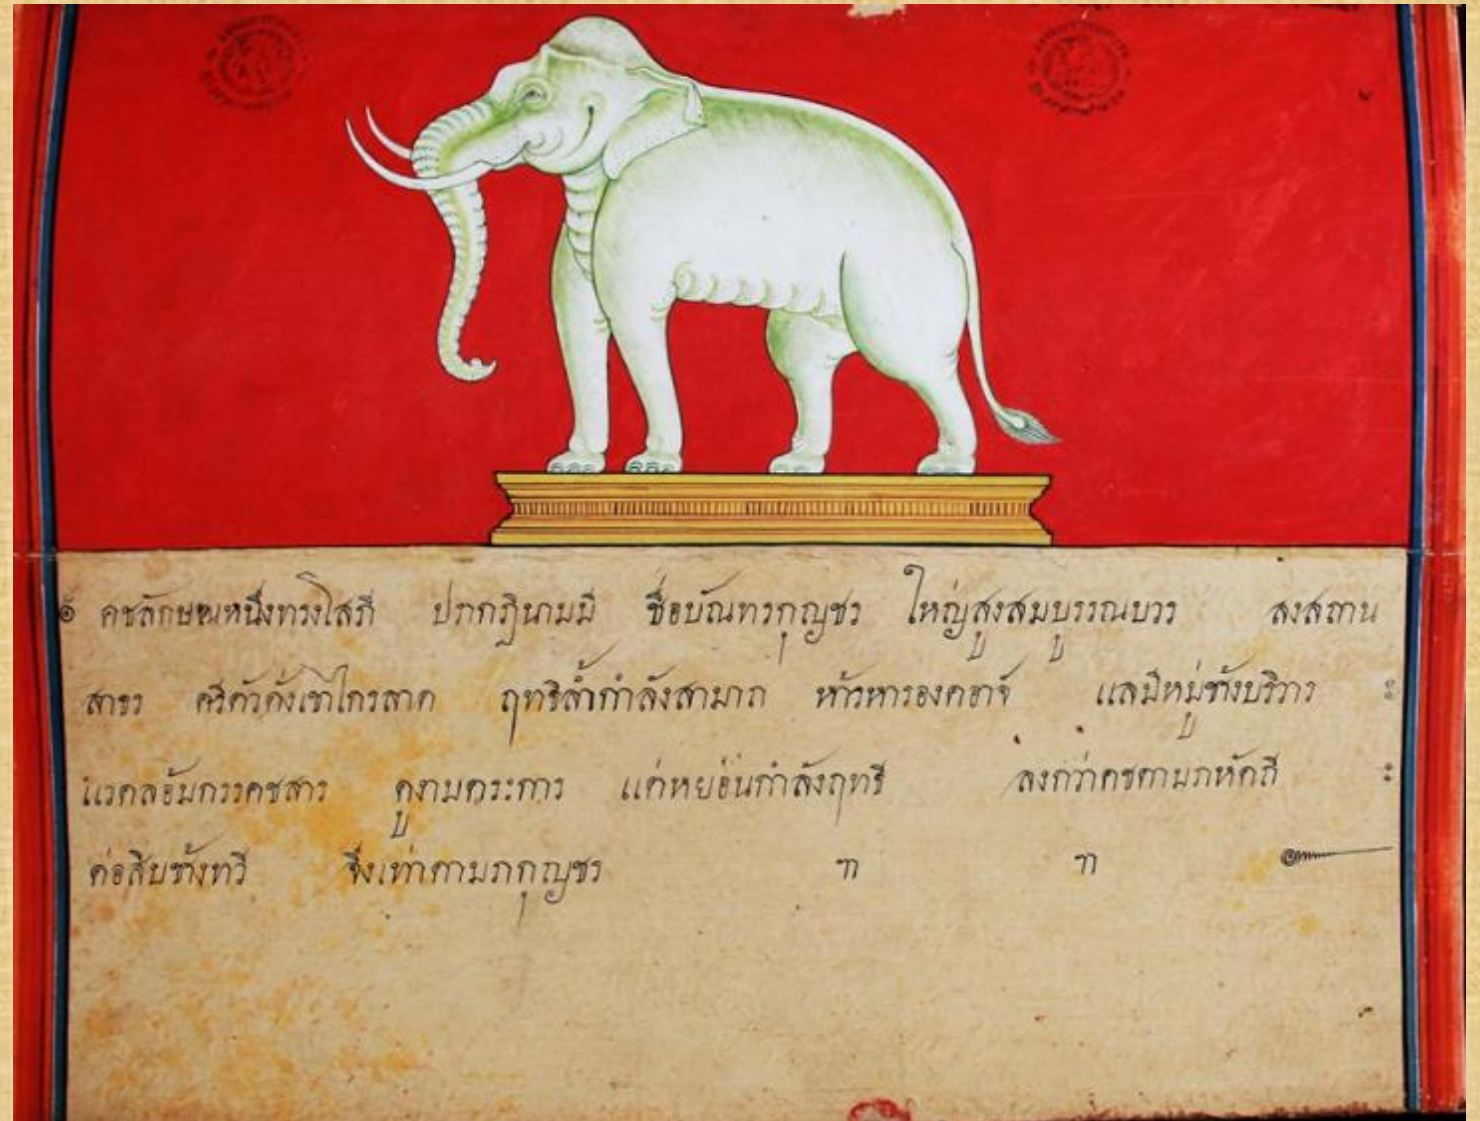 ๏ คชลักษณหนึ่งทรงโสภี ปรากฏินามมี ชื่อบัณทรกุญชร ใหญ่สูงสมบูรรณบวร สงสถาน
สาธร ศริตัวดั่งเขาไกรลาศ ฤทธิล้ำกำลังสามาถ ห้าวหารองคอาจ์ แลมีหมู่ช้างบริวาร ะ
แวดล้อมวรรคชสาร ดูงามตระการ แต่หย่อนกำลังฤทธี ลงกว่าคชตามภหัตถี ะ
ต่อสิบช้างทวี จึ่งเท่าตามภกุญชร ฯ ฯ ๛